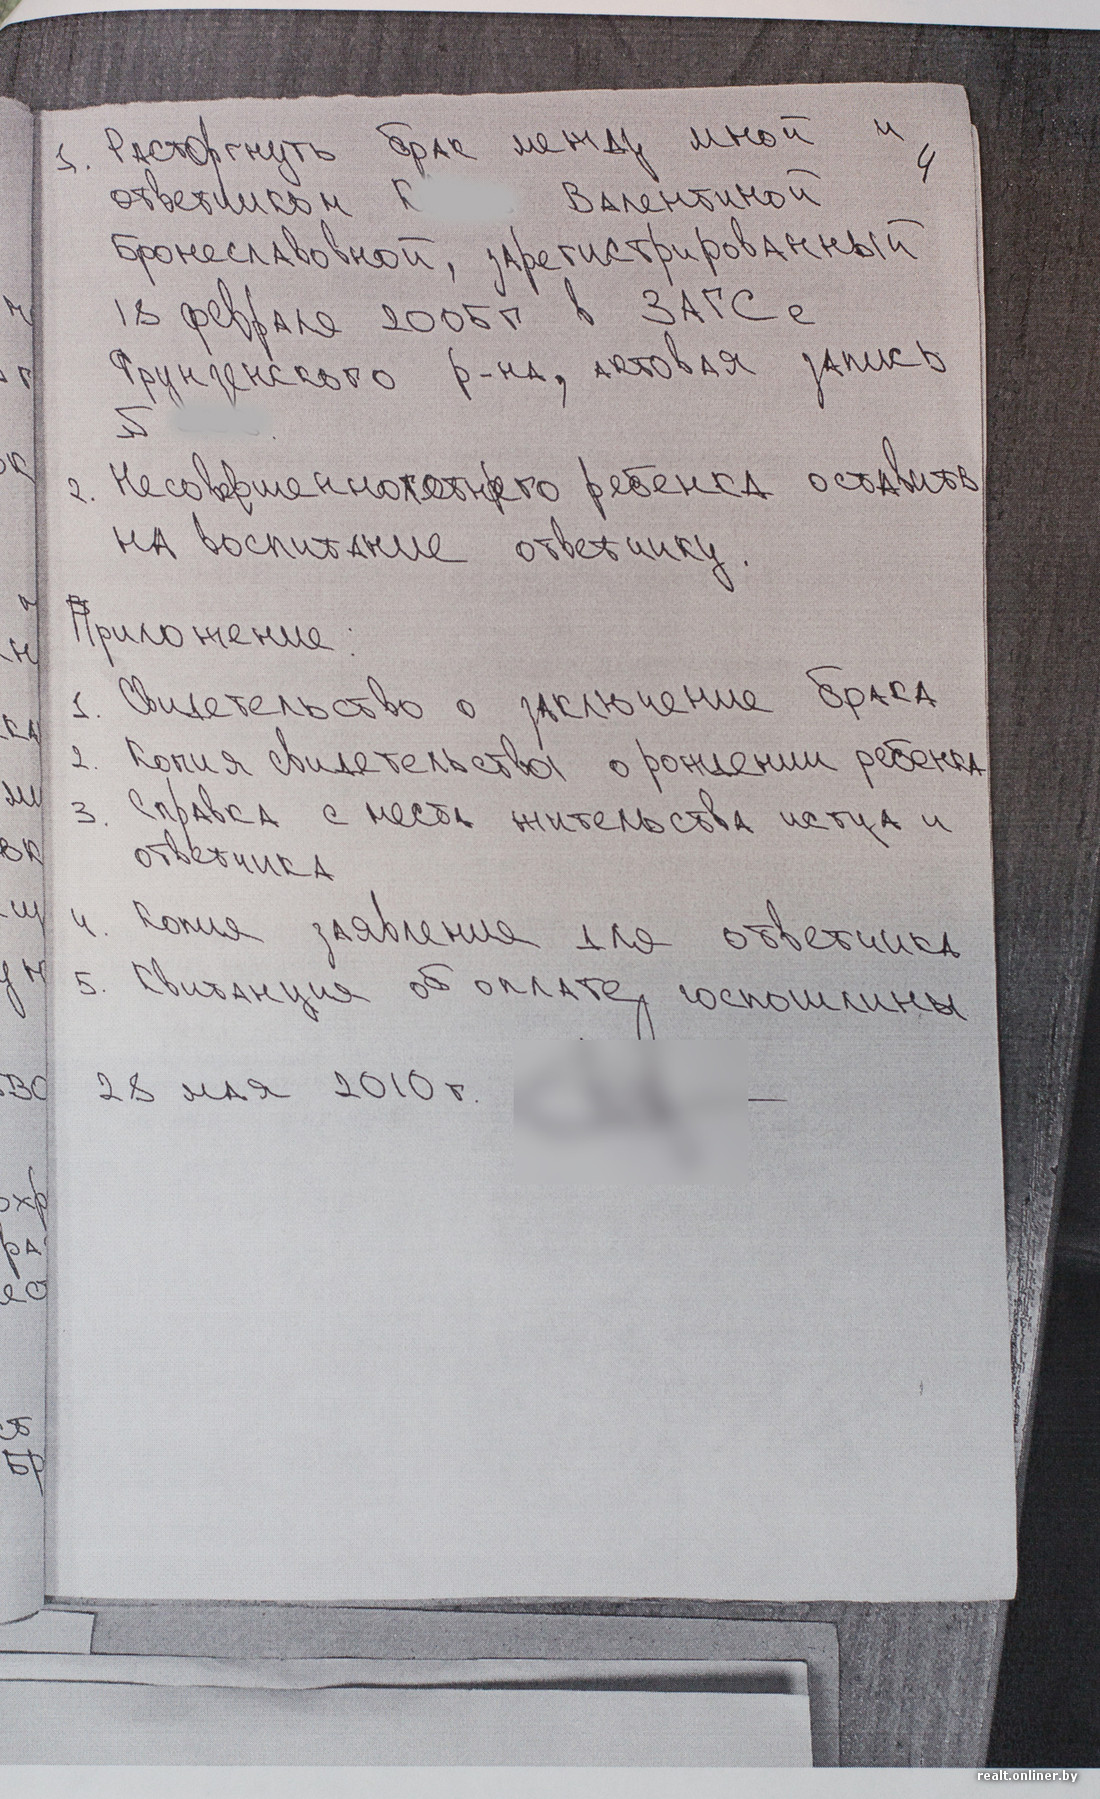 1. Расторгнуть брак между мной и
4
ответчиком К Валентиной
Бронеславовной, зарегистрированный
18 февраля 2005г в ЗАГСе
Фрунзенского р-на, актовая запись
2. Несовершеннолетнего ребенка оставить
на воспитание ответчику.
Приложение:
1. Свидетельство о заключение брака
2. Копия свидетельства о рождении ребенка
3. Справка с места жительства истца и
ответчика
4. Копия заявления для ответчика
5. Квитанция об оплате госпошлины
28 мая 2010г.
realt.onliner.by